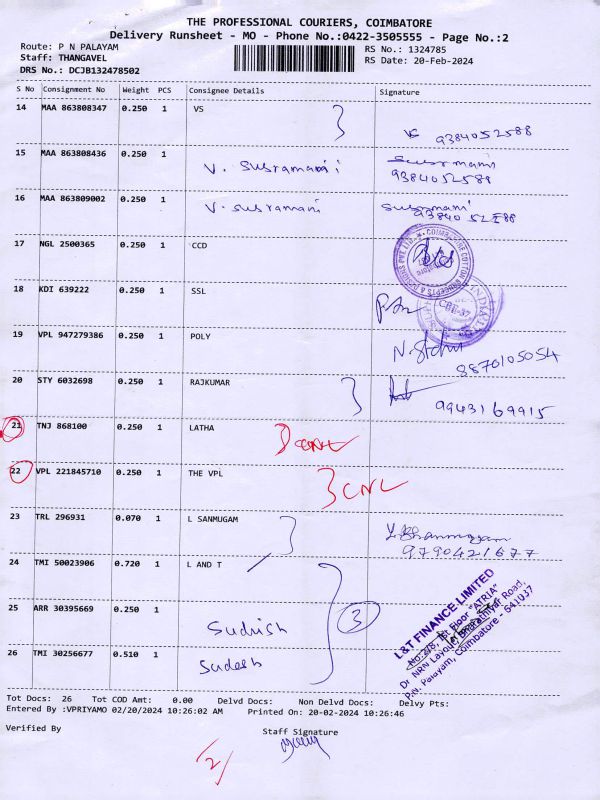 THE PROFESSIONAL COURIERS, COIMBATORE
Delivery Runsheet - MO - Phone No.:0422-3505555 - Page No.:2
Route: P N PALAYAM
Staff: THANGAVEL
DRS No.: DCJB132478502
RS No.: 1324785
RS Date: 20-Feb-2024
S No Consignment No Weight PCS Consignee Details Signature
14 MAA 863808347 0.250 1 VS VS 9384052588
15 MAA 863808436 0.250 1 V. Subramani Subramani
9384052588
16 MAA 863809002 0.250 1 V. Subramani Subramani
9384052588
17 NGL 2500365 0.250 1 CCD
18 KDI 639222 0.250 1 SSL
19 VPL 947279386 0.250 1 POLY
9870105054
20 STY 6032698 0.250 1 RAJKUMAR
9943169915
21 TNJ 868100 0.250 1 LATHA CNL
22 VPL 221845710 0.250 1 THE VPL CNL
23 TRL 296931 0.070 1 L SANMUGAM L Shanmugam
9790421677
24 TMI 50023906 0.720 1 L AND T
25 ARR 30395669 0.250 1 Sudhish 3
26 TMI 30256677 0.510 1 Sudesh
L&T FINANCE LIMITED
Floor "ATRIA"
Dr NRN Layout, Bharathiyar Road,
P.N. Palayam, Coimbatore - 641037
Tot Docs: 26 Tot COD Amt: 0.00 Delvd Docs: Non Delvd Docs: Delvy Pts:
Entered By :VPRIYAMO 02/20/2024 10:26:02 AM Printed On: 20-02-2024 10:26:46
Verified By Staff Signature
2